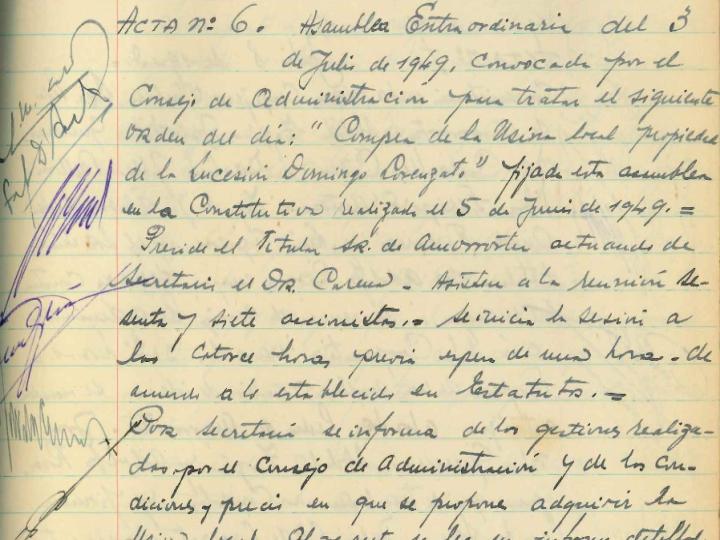 ACTA Nº 6. Asamblea Extraordinaria del 3
de Julio de 1949, convocada por el
Consejo de Administración para tratar el siguiente
orden del día: "Compra de la Usina local propiedad
de la Sucesión Domingo Lorenzati" fijada esta asamblea
en la Constitutiva realizada el 5 de Junio de 1949.=
Preside el Titular Sr. de Amorrortu actuando de
Secretario el Dr. Carena - Asisten a la reunión se-
senta y siete accionistas.= Se inicia la sesión a
las catorce horas previa espera de una hora - de
acuerdo a lo establecido en Estatutos.=
Por Secretaría se informa de las gestiones realiza-
das por el Consejo de Administración y de las con-
diciones y precio en que se propone adquirir la
Usina local.